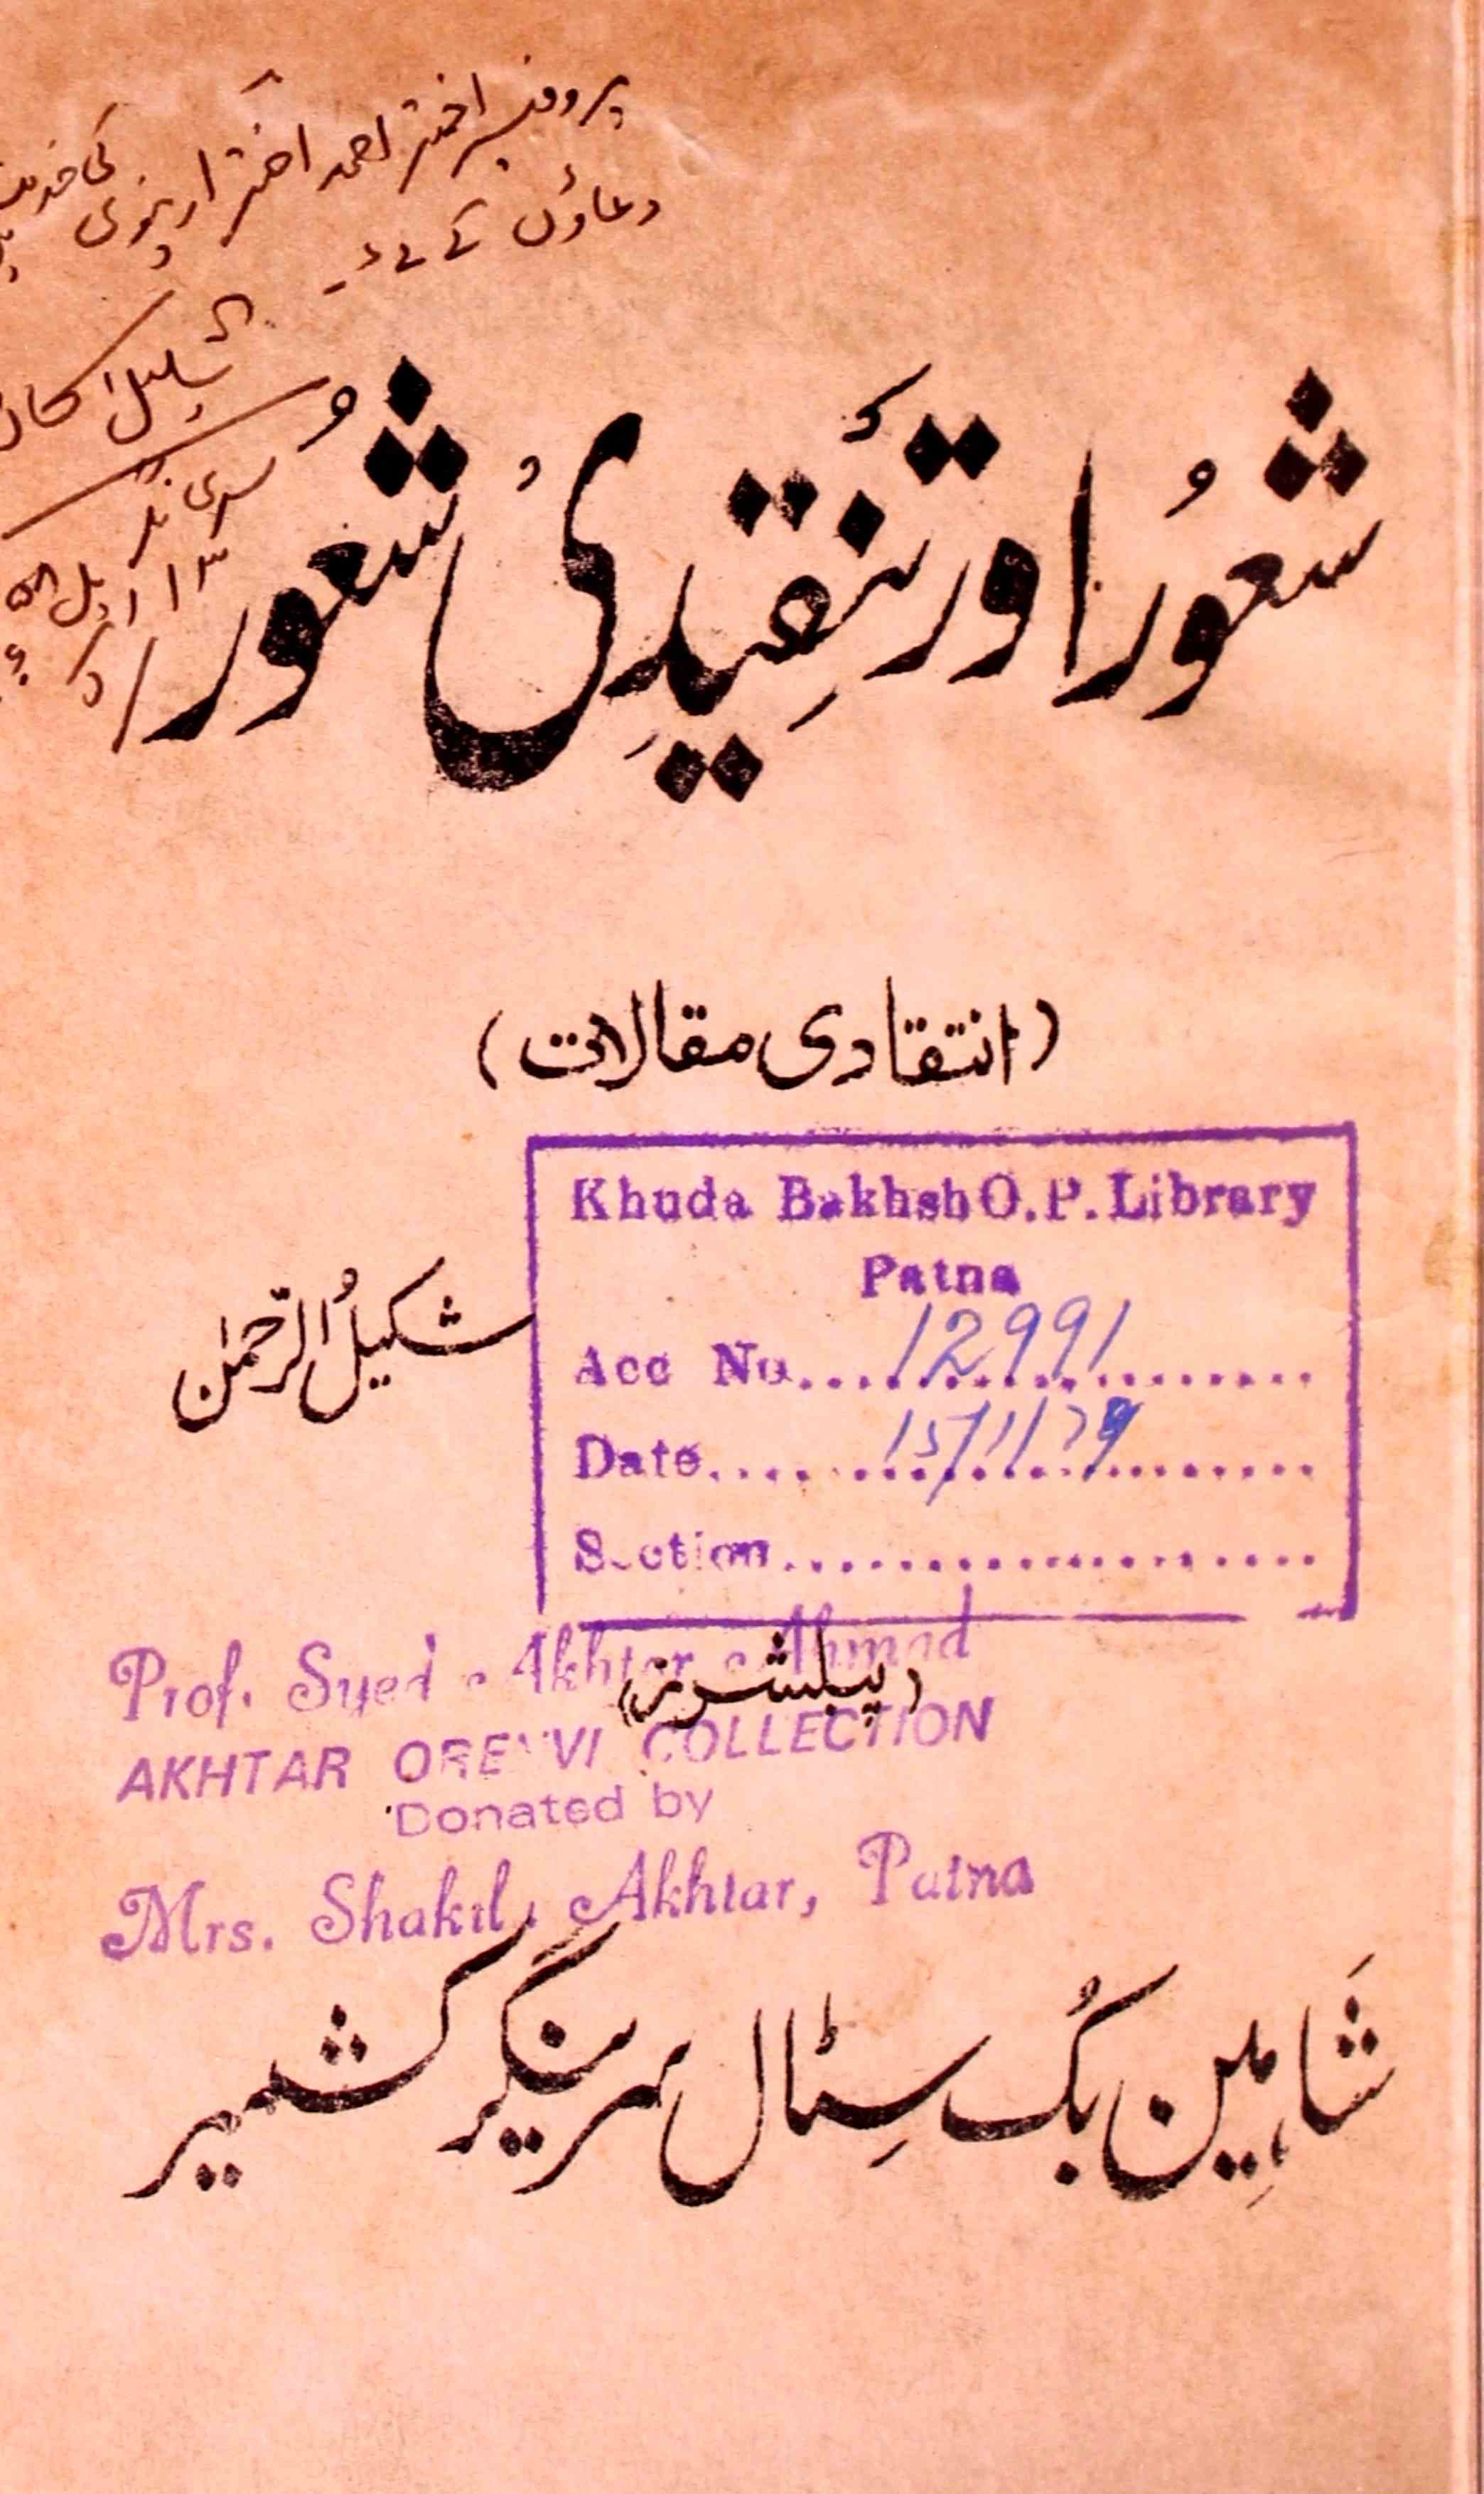 پروفیسر اختر احمد اختر اورینوی کی خدمت
دعاؤں کے لئے۔
شکیل الرحمٰن
سری نگر
۱۳ اپریل
شعور اور تنقیدی شعور
(انتقادی مقالات)
Khuda Bakhsh O.P. Library
Patna
Acc No....12991....
Date....15/1/79....
Section....
شکیلُ الرّحمٰن
Prof. Syed Akhtar Ahmad
(پبلشرز)
AKHTAR ORENVI COLLECTION
Donated by
Mrs. Shakila Akhtar, Patna
شاہین بُک سٹال سرینگر کشمیر